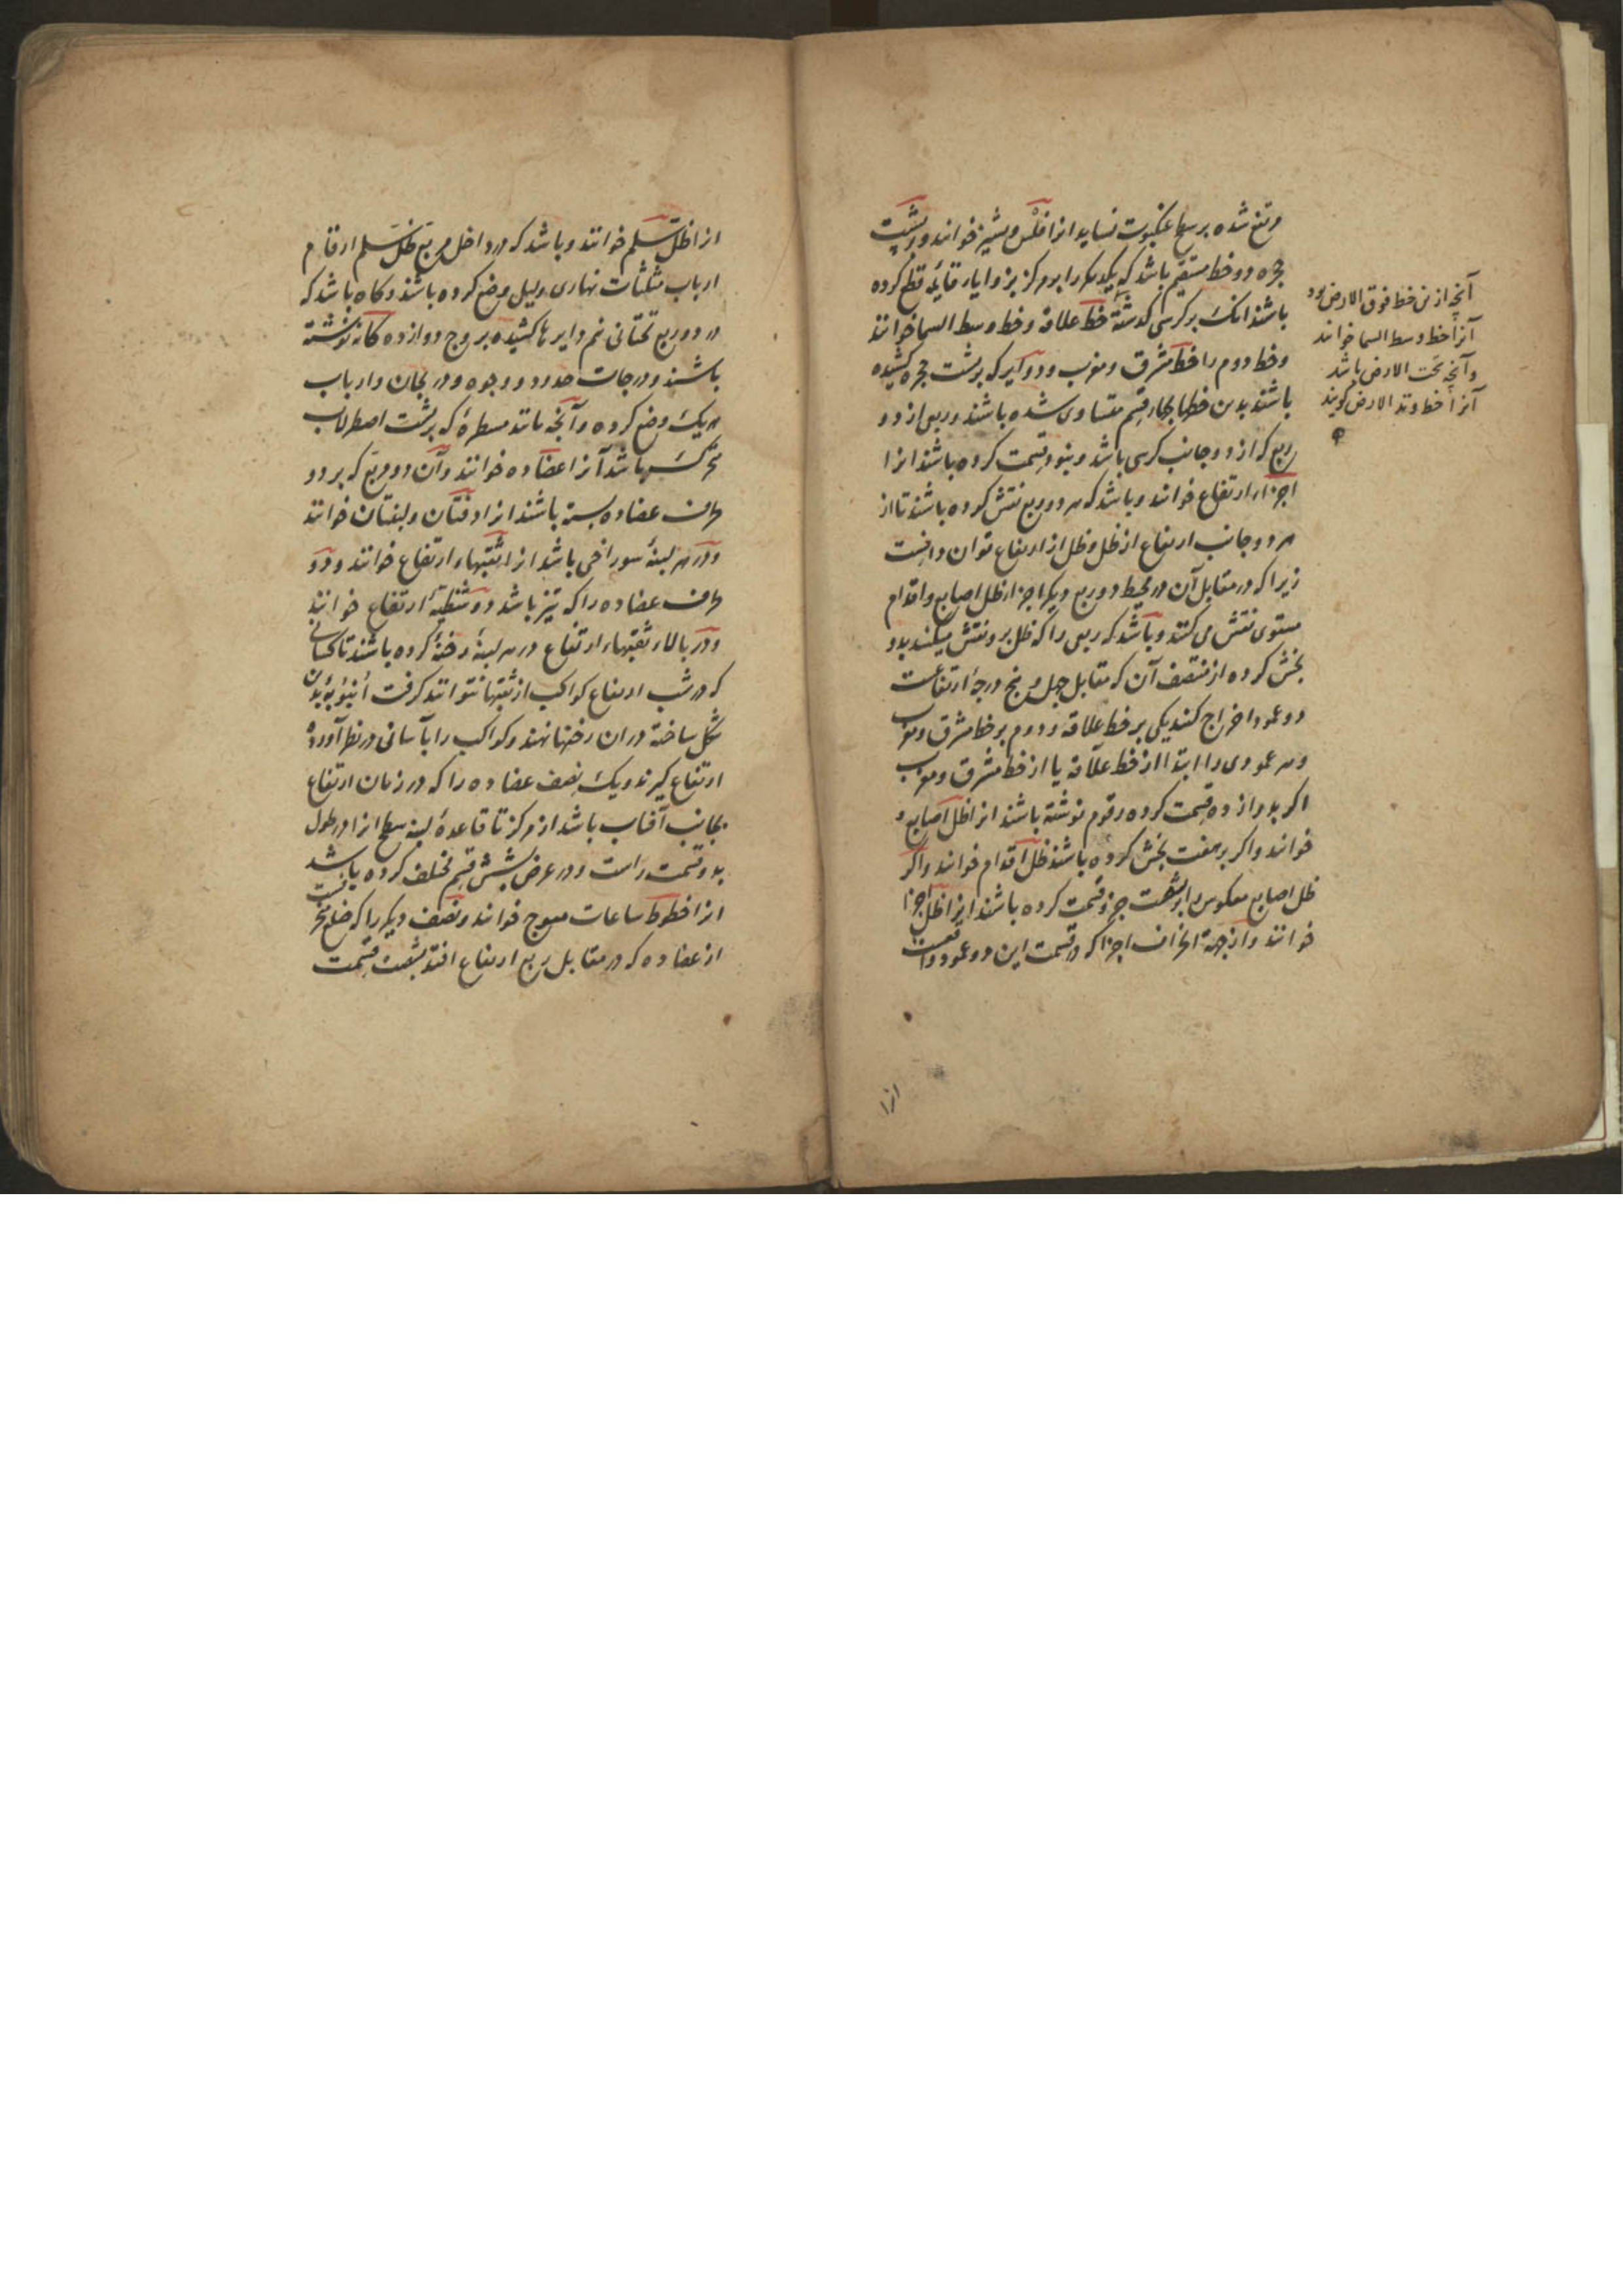 مرتفع شده بر سطح عنکبوت نساید انرا فلس و پشیز خوانند و بر پشت
حجره دو خط مستقیم باشد که یکدیگر را بر مرکز بزوایاء قایمه قطع کرده
باشند انک بر کرسی گذشته خط علاقه و خط وسط السما خوانند
و خط دوم را خط مشرق و مغرب و دوایر که بر پشت حجره کشیده
باشند بدین خطها بچهار قسم متساوی شده باشند و ربعی از دو
ربع که از دو جانب کرسی باشد و بنود قسمت کرده باشند انرا
اجزاء ارتفاع خوانند و باشد که هر دو ربع نقش کرده باشند تا از
هر دو جانب ارتفاع از ظل و ظل از ارتفاع توان دانست
زیرا که در مقابل آن در محیط دو ربع دیگر اجزاء ظل اصابع و اقدام
مستوی نقش می کنند و باشد که ربعی را که ظل برو نقش میکنند بدو
بخش کرده از منتصف آن که مقابل چهل و پنج درجه ارتفاعست
دو عمود اخراج کنند یکی بر خط علاقه و دوم بر خط مشرق و مغرب
و هر عمودی را ابتدا از خط علاقه یا از خط مشرق و مغرب
اکر بدوازده قسمت کرده رقوم نوشته باشند انرا ظل اصابع
خوانند و اکر بر هفت بخش کرده باشند ظل اقدام خوانند و اکر
ظل اصابع معکوس را بر شصت جزو قسمت کرده باشند انرا ظل اجزا
خوانند و از جهة انحراف اجزا که در قسمت این دو عمود واقعست
انرا
آنچه ازین خط فوق الارض بود
آنرا خط وسط السما خوانند
و آنچه تحت الارض باشد
آنرا خط وتد الارض گویند
انرا ظل سلم خوانند و باشد که در داخل مربع ظل سلم ارقام
ارباب مثلثات نهاری و لیلی وضع کرده باشند و کاه باشد که
در دو ربع تحتانی نیم دایرها کشیده بروج دوازده کانه نوشته
باشند و درجات حدود و وجوه و دریجان و ارباب
هر یک وضع کرده و آنچه مانند مسطرهٔ که بر پشت اصطرلاب
متحرک باشد آنرا عضاده خوانند و آن دو مربع که بر دو
طرف عضاده بسته باشند انرا دفتان و لبنتان خوانند
و در هر لبنهٔ سوراخی باشد انرا ثقبهاء ارتفاع خوانند و دو
طرف عضاده را که تیز باشد دو شظیهٔ ارتفاع خوانند
و در بالاء ثقبهاء ارتفاع در هر لبنهٔ رخنهٔ کرده باشند تا کسانی
که در شب ارتفاع کواکب از ثقبها نتوانند کرفت انبوبهٔ بدین
شکل ساخته در ان رخنها نهند و کواکب را بآسانی در نظر آورده
ارتفاع کیرند و یک نصف عضاده را که در زمان ارتفاع
بجانب آفتاب باشد از مرکز تا قاعدهٔ لبنه سطح انرا در طول
بدو قسمت راست و در عرض بشش قسم مختلف کرده باشد
انرا خطوط ساعات معوج خوانند و نصف دیگر را که ضلع
از عضاده که در مقابل ربع ارتفاع افتد بشصت قسمت